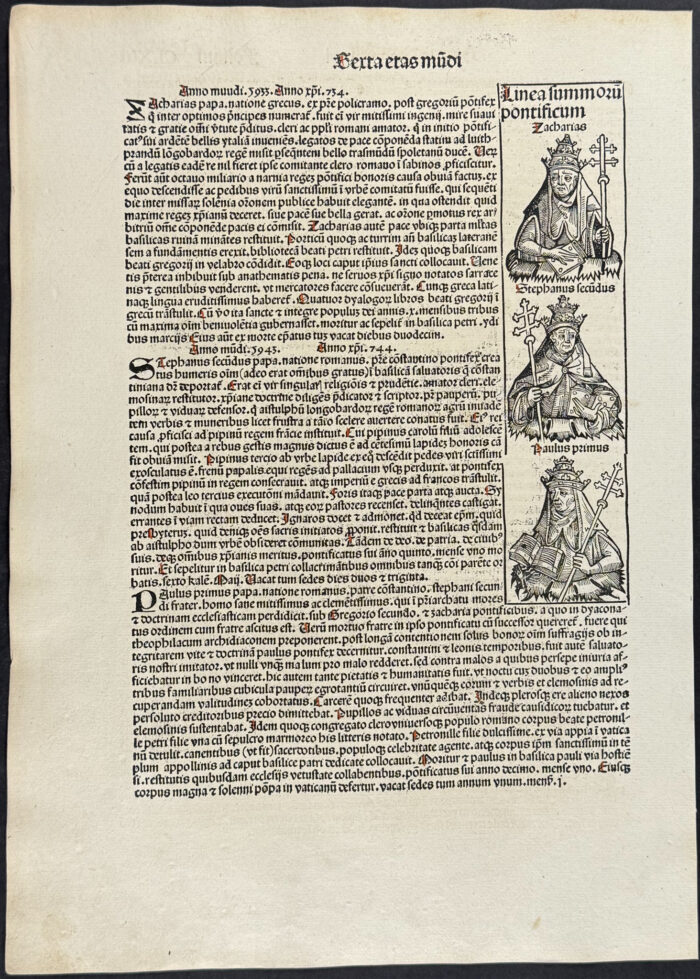 Sexta etas mūdi
Anno mundi .5933. Anno xpi. 734.
Linea summorū
pontificum
Zacharias
ZAcharias papa. natione grecus. ex pr̄e policramo. post gregoriū pontifex
q̄ inter optimos p̄ncipes numeraꝰ. fuit eī vir mitissimi ingenij. mire suaui
tatis & gratie oīni v̄tute p̄ditus. cleri ac pp̄li romani amator. q̄ in initio pōtifi-
catꝰ sui ardēte bellis ytaliā inueniēs. legatos de pace cōponēda statim ad luith-
prandū lōgobardoꝝ regē misit ꝑseq̄ntem bello trasmūdū spoletanū ducē. Veꝝ
cū a legatis eadē re nil fieret ipse comitante clero romano ī sabinos ꝓficiscitur.
Ferūt aūt octauo miliario a narnia reges pōtifici honoris causa obuiā factus. ex
equo descendisse ac pedibus virū sanctissimū ī vrbē comitatū fuisse. qui sequēti
die inter missaꝝ solēnia orōnem publice habuit elegantē. in qua ostendit quid
maxime regeꝫ xp̄ianū deceret. siue pacē siue bella gerat. ac orōne ꝓmotus rex ar-
bitriū om̄e cōponēde pacis ei cōmisit. Zacharias autē pace vbiqꝫ parta mltas
basilicas ruinā minātes restituit. Porticū quoqꝫ ac turrim añ basilicaꝫ lateranē
sem a fundamētis erexit. bibliotecā beati petri restituit. Ideꝫ quoqꝫ basilicam
beati gregorij in velabro cōdidit. Eoqꝫ loci caput ipsius sancti collocauit. Vene
tis p̄terea inhibuit sub anathematis pena. ne seruos xp̄i signo notatos sarrace
nis & gentilibus venderent. vt mercatores facere cōsueuerat. Cunqꝫ greca lati-
naqꝫ lingua eruditissimus haberet. Quatuor dyalogoꝝ libros beati gregorij ī
grecū trāstulit. Cū v̄o ita sancte & integre populuꝫ dei annis .x. mensibus tribus
cū maxima oīm beniuolētia gubernasset. moritur ac sepeliꝉ in basilica petri. ydi
bus marcijs Eius aūt ex morte ep̄atus tūc vacat diebus duodecim.
Anno mūdi. 5943. Anno xpi. 744.
Stephanus secūdus
STephanus secūdus papa. natione romanus. pr̄e cōstantino pontifex crea
tus humeris oīm (adeo erat omībus gratus) ī basilicā saluatoris q̄ costan
tiniana dr̄ deportaꝉ. Erat eī vir singularꝭ religiōis & prudētie. amator cleri. ele-
mosinaꝝ restitutor. xpiane doctrine diligēs p̄dicator & scriptor. pr̄ pauperū. pu-
pilloꝝ & viduaꝝ defensor. q̄ aistulphū longobardoꝝ regē romanoꝝ agrū inuadē
tem verbis et muneribus licet frustra a tāto scelere auertere conatus fuit. Eꝰ rei
causa ꝓficisci ad pipinū regem frācie instituit. Cui pipinus carolū filiū adolescē
tem. qui postea a rebus gestis magnus dictus ē ad cētesimū lapideꝫ honoris cā
fit obuiā misit. Pipinus tercio ab vrbe lapide ex eq̄ descēdit pedes viri sctissimi
exosculatus ē. frenū papalis equi regēs ad pallacium vsqꝫ perduxit. at pontifex
cōfestim pipinū in regem consecrauit. atqꝫ imperiū e grecis ad francos trāstulit.
quā postea leo tercius executōni mādauit. Foris itaqꝫ pace parta atqꝫ aucta. Sy
nodum habuit ī qua oues suas. atqꝫ eoꝝ pastores recenset. delinquētes castigat.
errantes ī viam rectam deducet. Ignaros docet & admonet. qd deceat ep̄m. quid
presbyterꝫ. quid deniqꝫ oēs sacris initiatos ꝓponit. restituit & basilicas qsdam
ab aistulpho dum vrbē obsideret cōmunitas. Tādem de deo. de patria. de ciuibꝰ
suis. deqꝫ omībus xp̄ianis meritus. pontificatus sui āno quinto. mense vno mo
ritur. Et sepelitur in basilica petri collacrimātibus omnibus tanqꝫ cōi parēte or
batis. sexto kalē. Maij. Uacat tum sedes dies duos & triginta.
Paulus primus
PAulus primus papa. natione romanus. patre cōstantino. stephani secun
di frater. homo sane mitissimus ac clemētissimus. qui ī p̄riarchatu mores
& doctrinam ecclesiasticam perdidicit. sub Gregorio secundo. & zacharia pontificibus. a quo in dyacona-
tus ordinem cum fratre ascitus est. Uerū mortuo fratre in ipso pontificatu cū successor quereret. fuere qui
theophilacum archidiaconem preponerent. post longā contentionem solus honor oīm suffragijs ob in-
tegritatem vite & doctrinā paulus pontifex decernitur. constantini & leonis temporibus. fuit autē saluato-
ris nostri imitator. vt nulli vnqꝫ malum pro malo redderet. sed contra malos a quibus persepe iniuria af-
ficiebatur in bono vinceret. hic autem tante pietatis & humanitatis fuit. vt noctu cū duobus & eo āplꝰ
tribus familiaribus cubicula paupeꝝ egrotantiū circuiret. vnūquēqꝫ eorum & verbis et elemosinis ad re-
cuperandam valitudineꝫ cohortatus. Carcerē quoqꝫ frequenter adibat. Indeqꝫ plerosqꝫ ere alieno nexos
persoluto creditoribus precio dimittebat. Pupillos ac viduas circūuentas fraude causidicoꝝ tuebatur. et
elemosinis sustentabat. Idem quoqꝫ congregato clero vniuersoqꝫ populo romano corpus beate petronil-
le petri filie vna cū sepulcro marmoreo his litteris notato. Petronille filie dulcissime. ex via appia ī vatica
nū detulit. canentibus (vt fit) sacerdotibus. populoqꝫ celebritate agente. atqꝫ corpus ip̄m sanctissimū in tē
plum appollinis ad caput basilice patri dedicate collocauit. Moritur & paulus in basilica pauli via hostiē
si. restitutis quibusdam ecclesijs vetustate collabentibus. pōtificatus sui anno decimo. mense vno. Eiusqꝫ
corpus magna & solenni pōpa in vaticanū defertur. vacat sedes tum annum vnum. mensē .j.